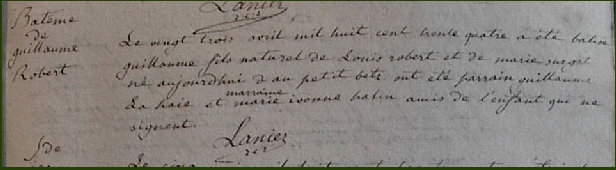 Lanier
Bateme
de
guillaume
Robert
Le vingt trois avril mil huit cent trente quatre a été batisé
guillaume fils naturel de Louis robert et de marie
né aujourdhui au petit betz ont été parrain guillaume
La haie et marraine marie ivonne batin amis de l'enfant qui ne
signent.
Lanier
de
Le cinq